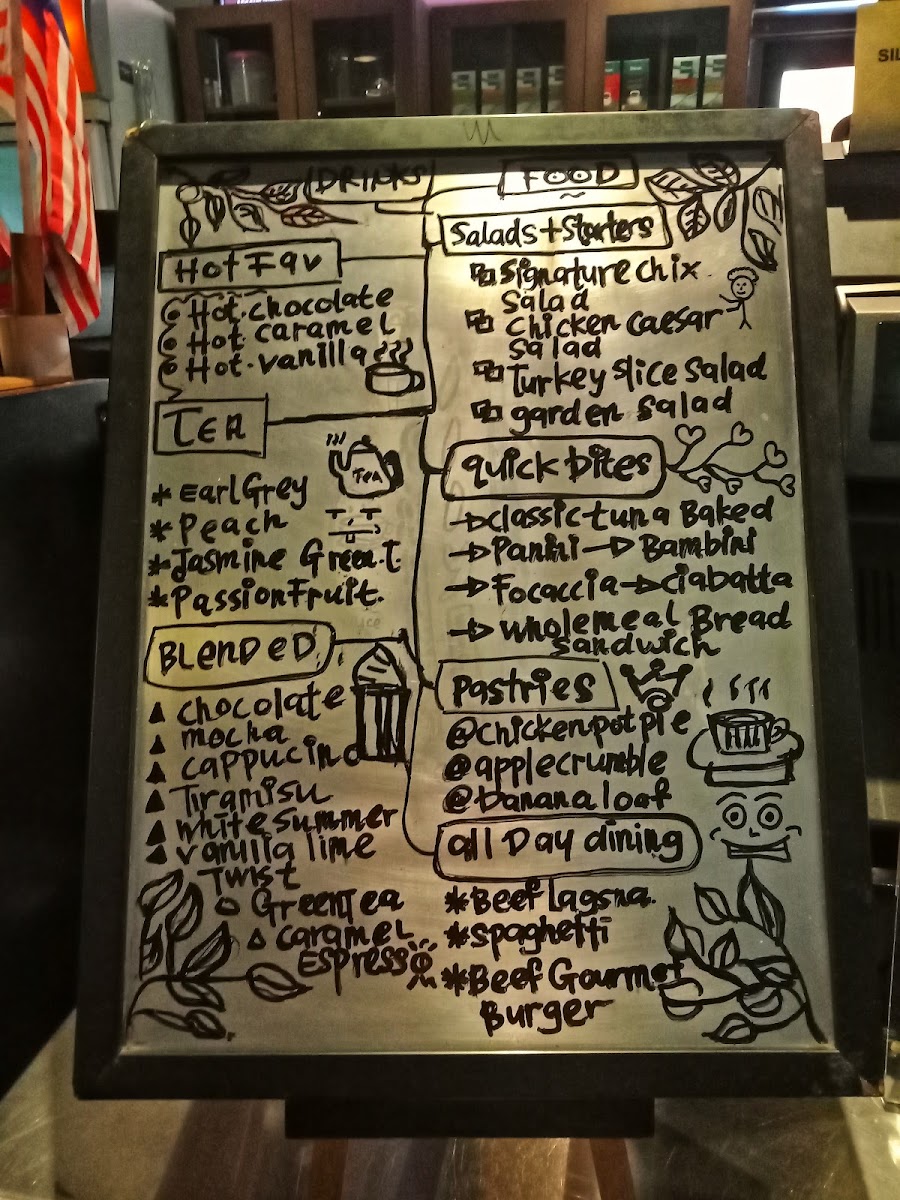 SIL
DRINKS
Hot Fav
Hot.chocolate
Hot caramel
Hot.vanilla
TEA
Tea
* Earl Grey
* Peach
*Jasmine Green.T
*PassionFruit.
BLENDED
chocolate
mocha
cappucino
Tiramisu
white summer
vanilla lime
Twist
GreenTea
caramel
Espresso
FOOD
Salads+Starters
Signature chix
Salad
chicken caesar
salad
Turkey slice salad
garden salad
quick bites
classic tuna Baked
Panini → Bambini
Focaccia → ciabatta
wholemeal Bread
sandwich
Pastries
@chickenpotpie
@applecrumble
@bananaloaf
all Day dining
*Beef Lagsna.
*spaghetti
*Beef Gourmet
Burger